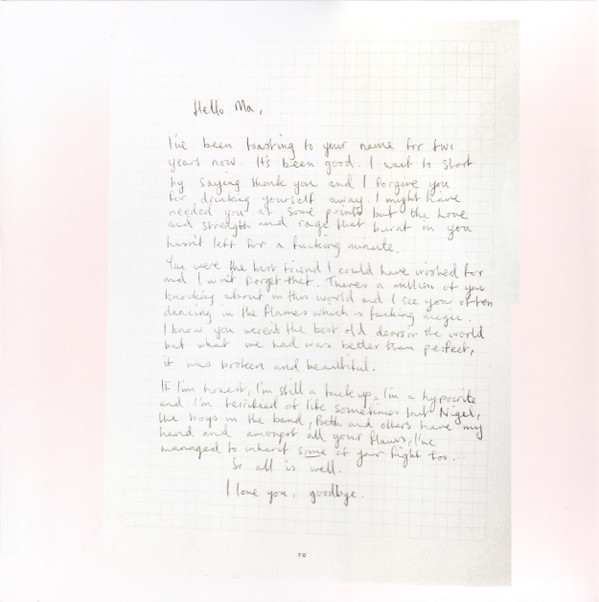 Hello Ma,
I've been toasting to your name for two
years now. It's been good. I want to start
by saying thank you and I forgive you
for drinking yourself away. I might have
needed you at some points but the love
and strength and rage that burnt in you
hasn't left for a fucking minute.
You were the best friend I could have wished for
and I won't forget that. Theres a million of you
knocking about in this world and I see you often
dancing in the flames which is fucking magic.
I know you weren't the best old dear in the world
but what we had was better than perfect,
it was broken and beautiful.
If I'm honest, I'm still a fuck up, I'm a hypocrite
and I'm terrified of life sometimes but Nigel,
the boys in the band, Beth and others have my
hand and amongst all your flaws, I've
managed to inherit some of your fight too.
So all is well.
I love you, goodbye.
70